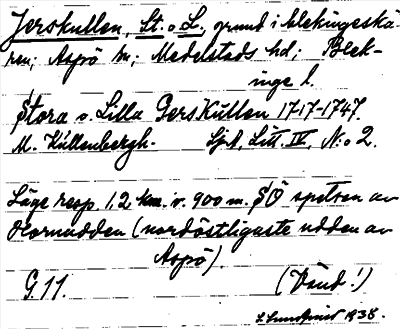 Jerskullen, St. o L., grund i blekingeskä-
ren; Aspö sn; Medelstads hd; Blek-
inge l.
Stora o. Lilla Gerskullen 1717-1747.
M. Küllenbergh. Sj.A, Litt. IV, N:o 2.
Läge resp. 1,2 km. o. 900 m. SÖ spetsen av
Hornudden (nordöstligaste udden av
Aspö).
G. 11. (Vänd!)
S. Sundqvist 1938.